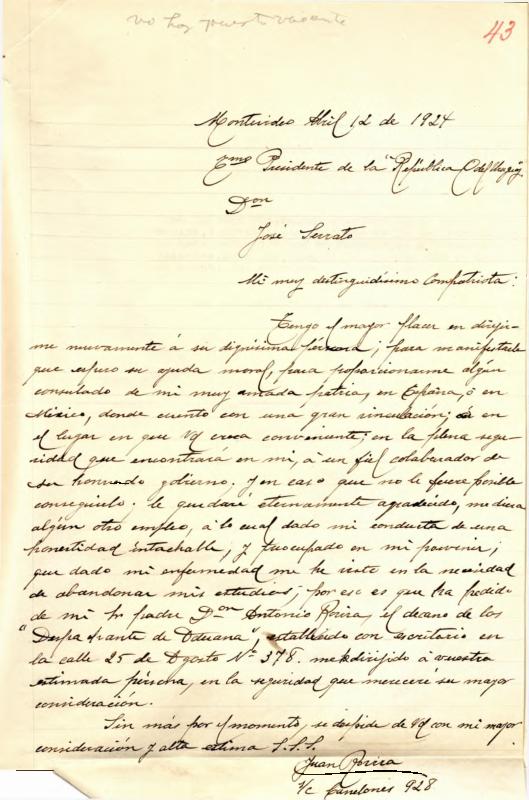 no hay puesto vacante
43
Montevideo Abril 12 de 1924
Exmo Presidente de la República O. del Uruguay
Don
José Serrato
Mi muy distinguidísimo Compatriota:
Tengo el mayor placer en dirijir-
me nuevamente á su dignísima persona; para manifestarle
que espero su ayuda moral, para proporcionarme algún
consulado de mi muy amada patria, en España, ó en
México, donde cuento con una gran vinculación; ó en
el lugar en que Vd crea conveniente; en la plena segu-
ridad que encontrará en mi, á un fiel colaborador de
su honrado gobierno. Y en caso que no le fuere posible
conseguirlo; le quedaré eternamente agradecido, me diera
algún otro empleo, á lo cual dado mi conducta de una
honestidad intachable, y preocupado en mi porvenir;
que dado mi enfermedad me he visto en la necesidad
de abandonar mis estudios; por eso es que ha pedido
de mi Sr padre Don Antonio Rovira, el decano de los
"Despachante de Aduana", establecido con escritorio en
la calle 25 de Agosto Nº 378. me dirijido á vuestra
estimada persona, en la seguridad que mereceré su mayor
consideración.
Sin más por el momento, se despide de Vd con mi mayor
consideración y alta estima S.S.S.
Juan Rovira
S/c Canelones 928